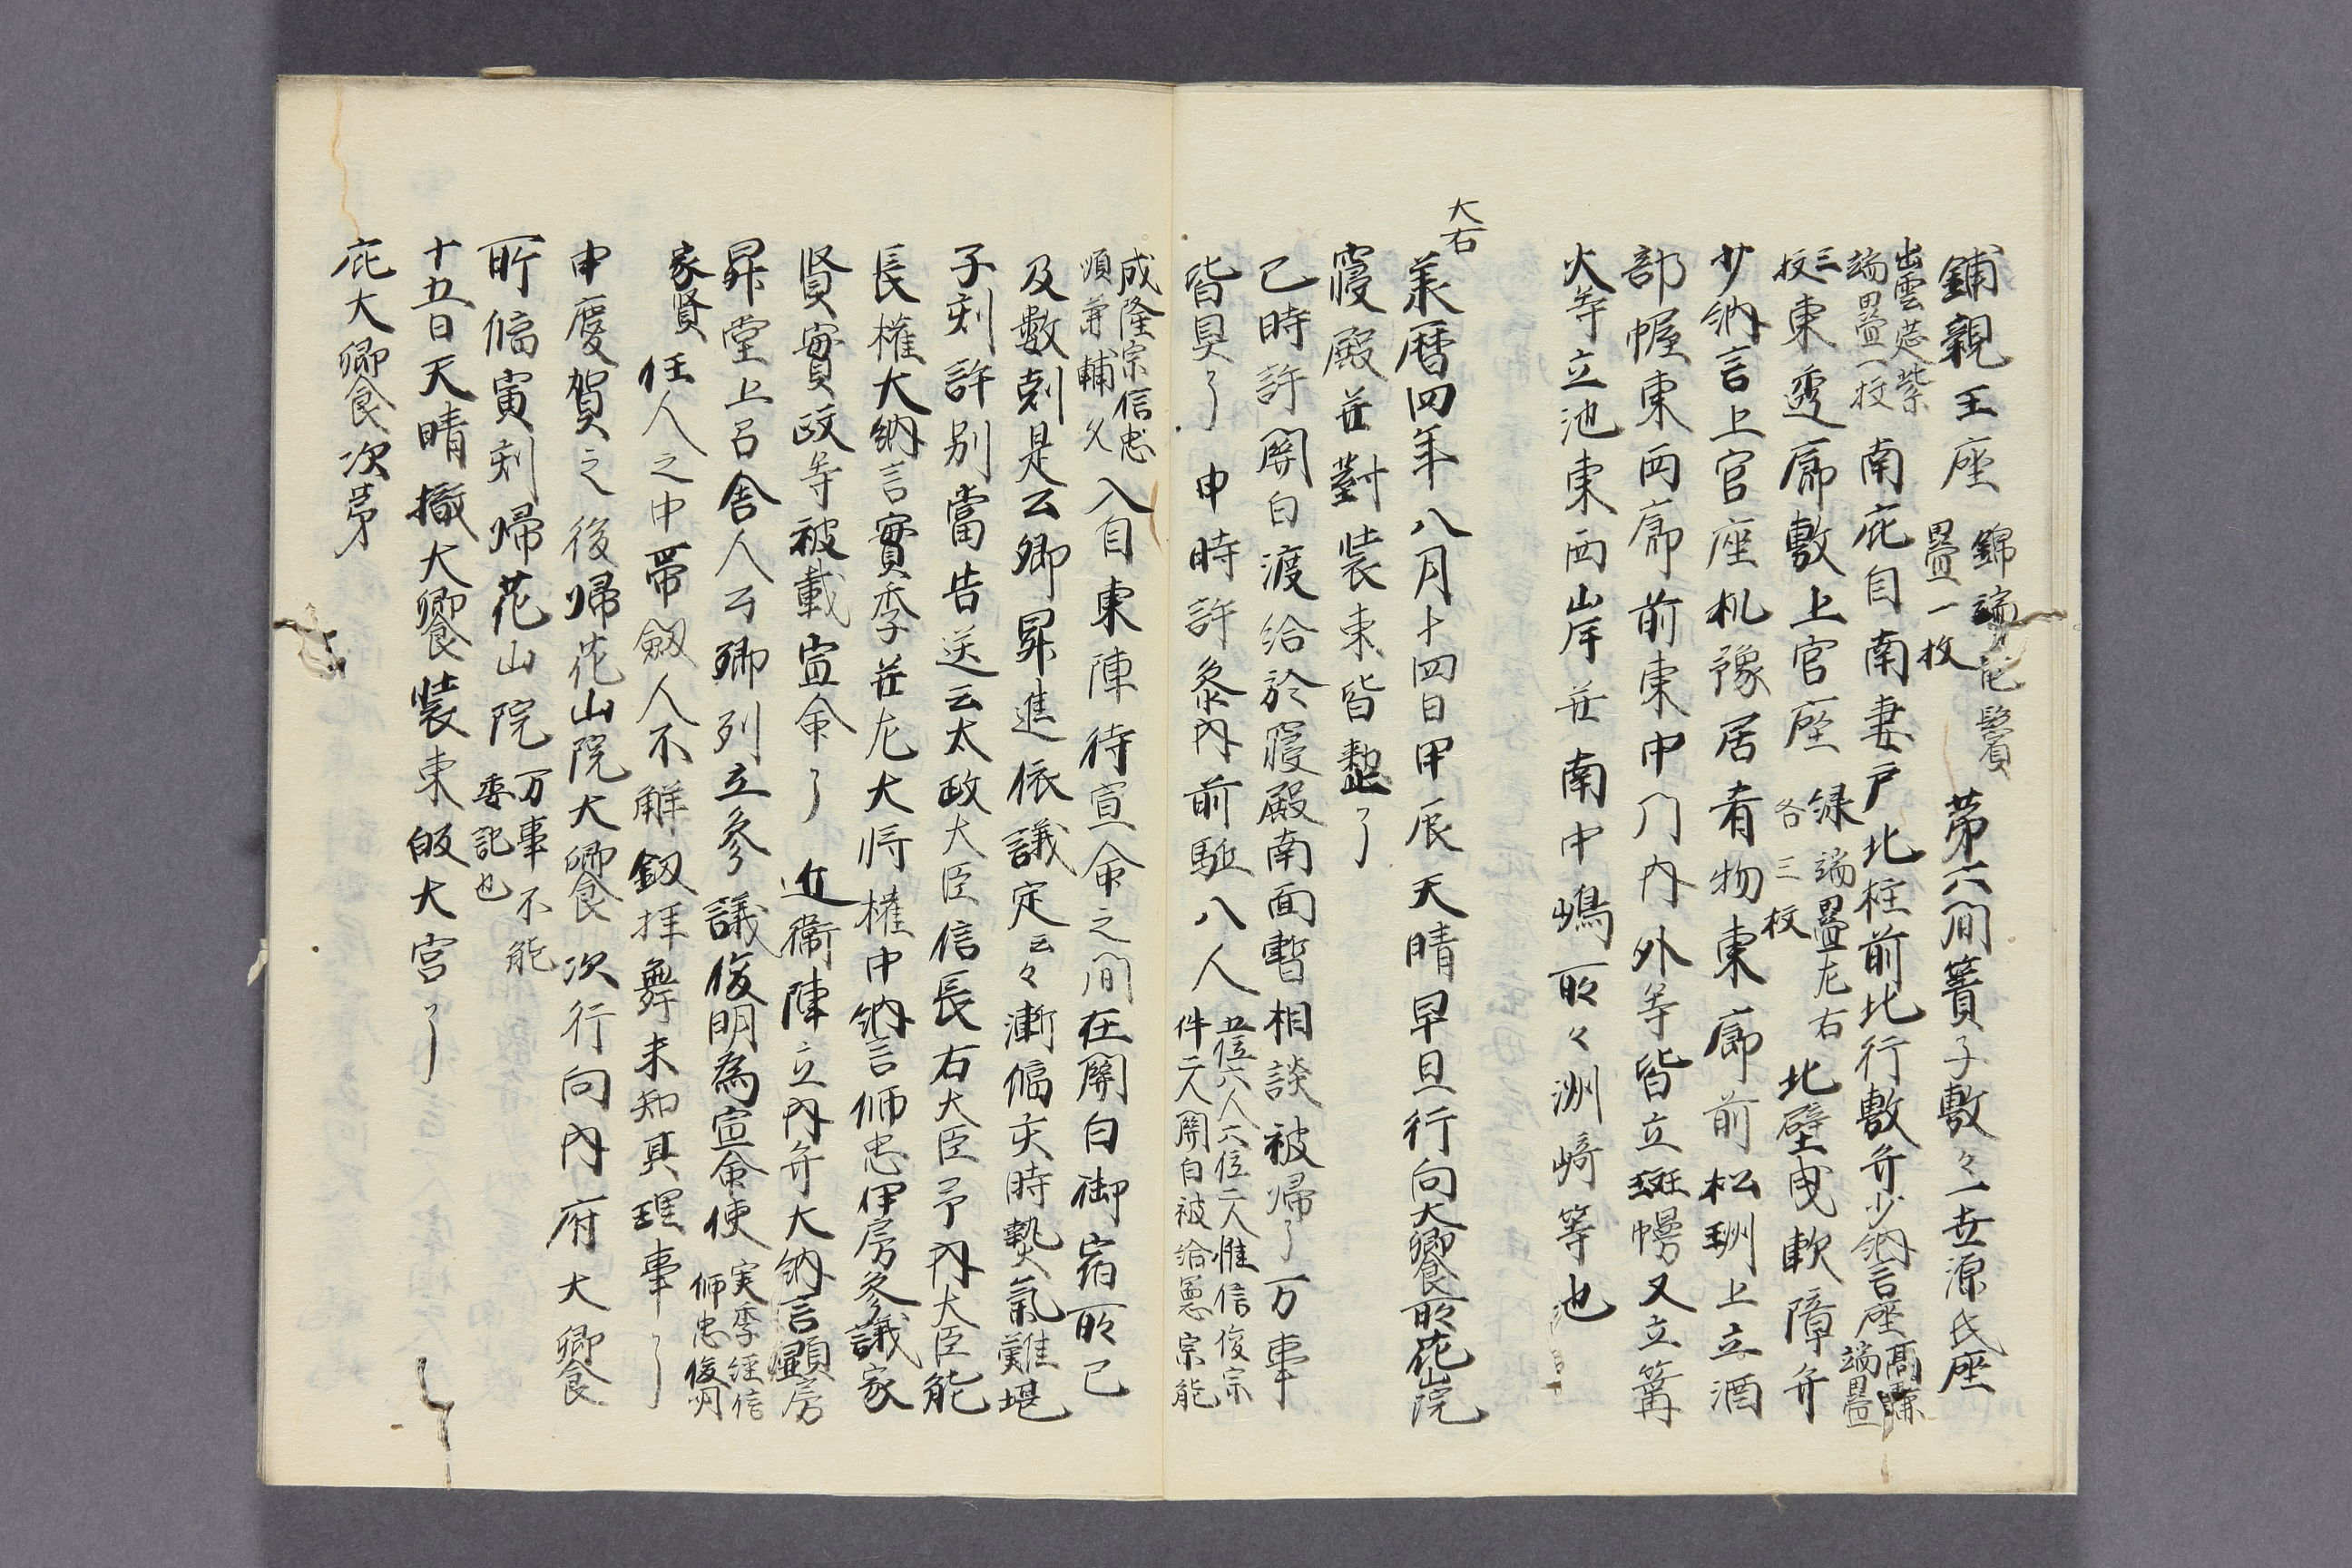 鋪親王座 錦端龍鬢
畳一枚 第六間簀子敷々一世源氏座
出雲莚紫
端畳一枚 南庇自南妻戸北柱前北行敷弁少納言座 高麗
端畳
三
枚 東透廊敷上官座 緑端畳左右
各三枚 北壁曳軟障弁
少納言上官座机豫居肴物東廊前松樹上立酒
部幄東西廊前東中门内外等皆立斑幔又立篝
火等立池東西岸并南中嶋所々洲﨑等也
大右
承暦四年八月十四日甲辰天晴早旦行向大饗所花山院
寝殿并對装束皆整了
已時許関白渡給於寝殿南面暫相談被帰了万事
皆具了申時許参内前駈八人 五位六人六位二人惟信俊宗
件二人関白被給 宗能
成隆宗信忠
頃兼輔久 入自東陣待宣命之间在関白御宿所已
及數剋是公卿昇進依議定云々漸偏亥時熱氣難堪
子刻許別當告送云太政大臣信長右大臣予内大臣能
長権大納言實季并左大将権中納言師忠伊房参議家
賢實政等被載宣命了 近衛陣立内弁大納言顕房
昇堂上召舎人公卿列立参議俊明為宣命使 実季経信
師忠俊明
家賢 任人之中帯劔人不解釼拝舞未知其理事了
申慶賀之後帰花山院大饗次行向内府大饗
所偏寅刻帰花山院 万事不能
委記也
十五日天晴撤大饗装束皈大宮了
庇大饗次第